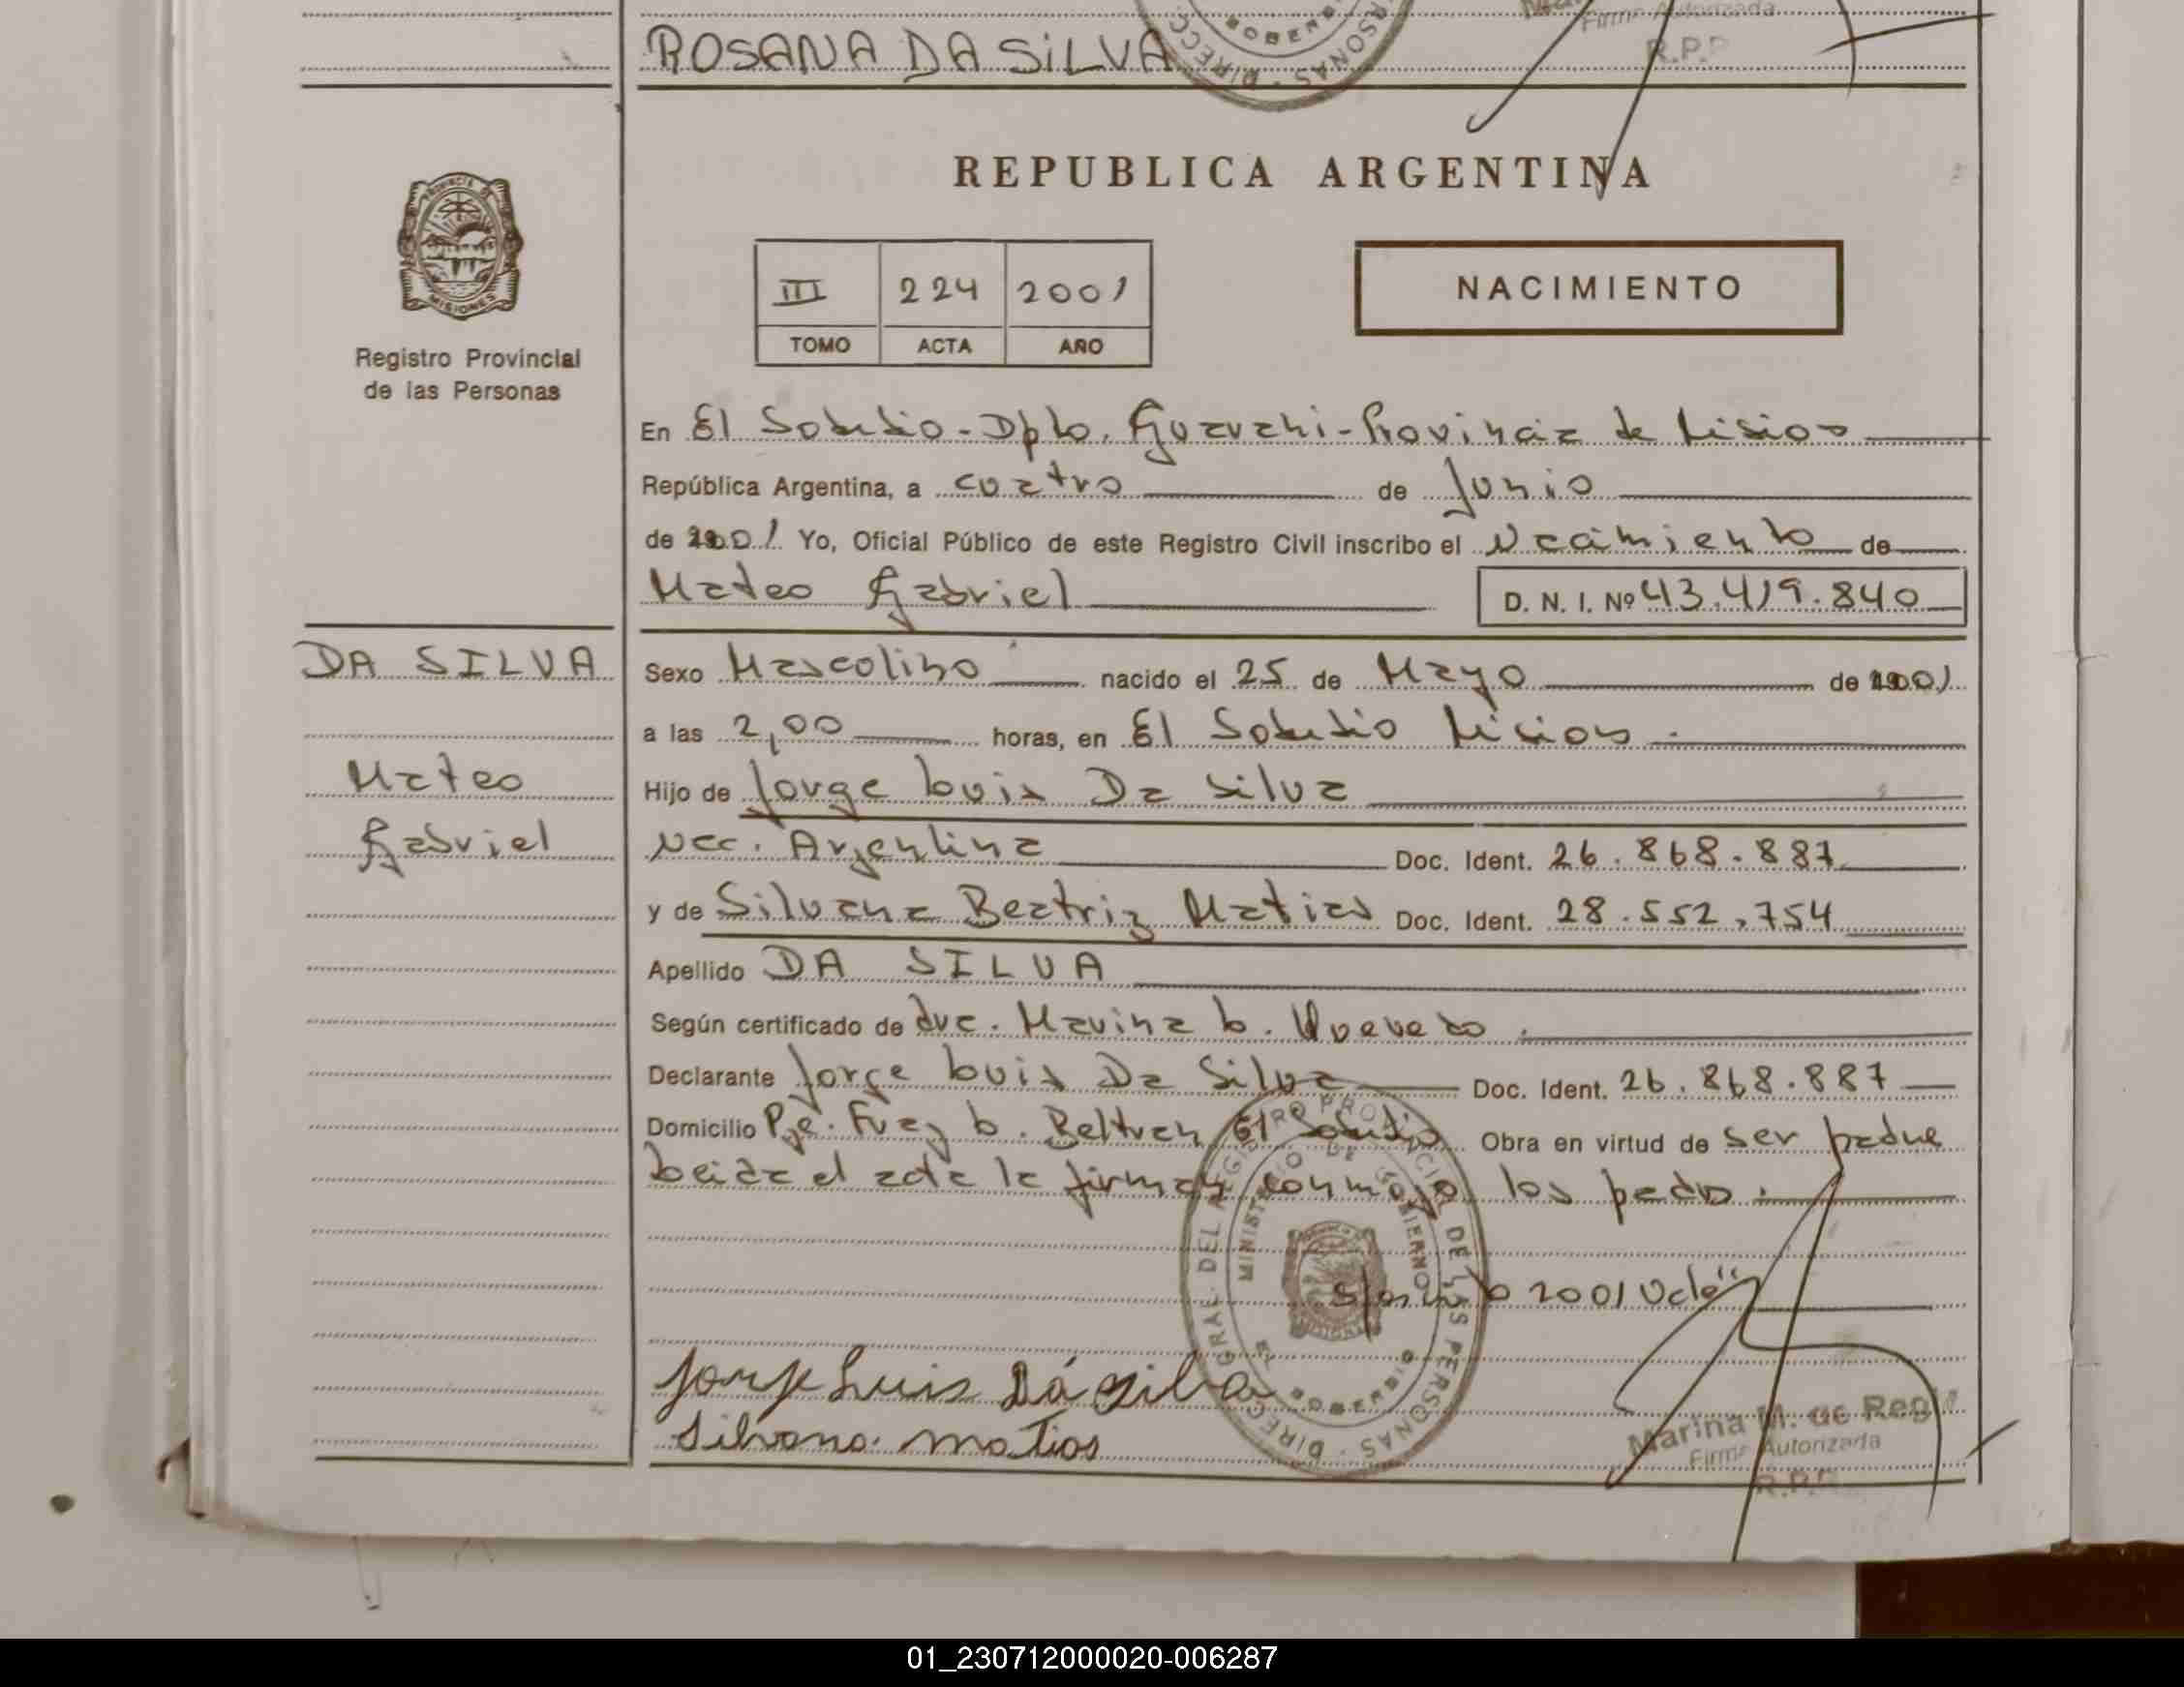 ROSANA DA SILVA
Firma Autorizada
R.P.P
REPUBLICA ARGENTINA
PROVINCIA DE MISIONES
Registro Provincial
de las Personas
III 224 2001
TOMO ACTA AÑO
NACIMIENTO
En El Soberbio - Dpto. Guarani - Provincia de Misiones
República Argentina, a cuatro de Junio
de 2001 Yo, Oficial Público de este Registro Civil inscribo el Nacimiento de
Mateo Gabriel D. N. I. Nº 43.419.840
DA SILVA
Mateo
Gabriel
Sexo Masculino nacido el 25 de Mayo de 2001
a las 2,00 horas, en El Soberbio Misiones.
Hijo de Jorge Luis Da Silva
Nac. Argentina Doc. Ident. 26.868.887
y de Silvana Beatriz Matias Doc. Ident. 28.552.754
Apellido DA SILVA
Según certificado de dra. Marina L.
Declarante Jorge Luis Da Silva Doc. Ident. 26.868.887
Domicilio Pje. Fray L. Beltran El Soberbio Obra en virtud de ser padre
Leida el acta la firman conmigo los padres.
2001 Vale"
Jorge Luis Dá Silva
Silvana Matias
DIRECC. GRAL. DEL REGISTRO PROVINCIAL DE LAS PERSONAS
MINISTERIO DE GOBIERNO
EL SOBERBIO
Marina M. de
Firma Autorizada
R.P.P.
01_230712000020-006287